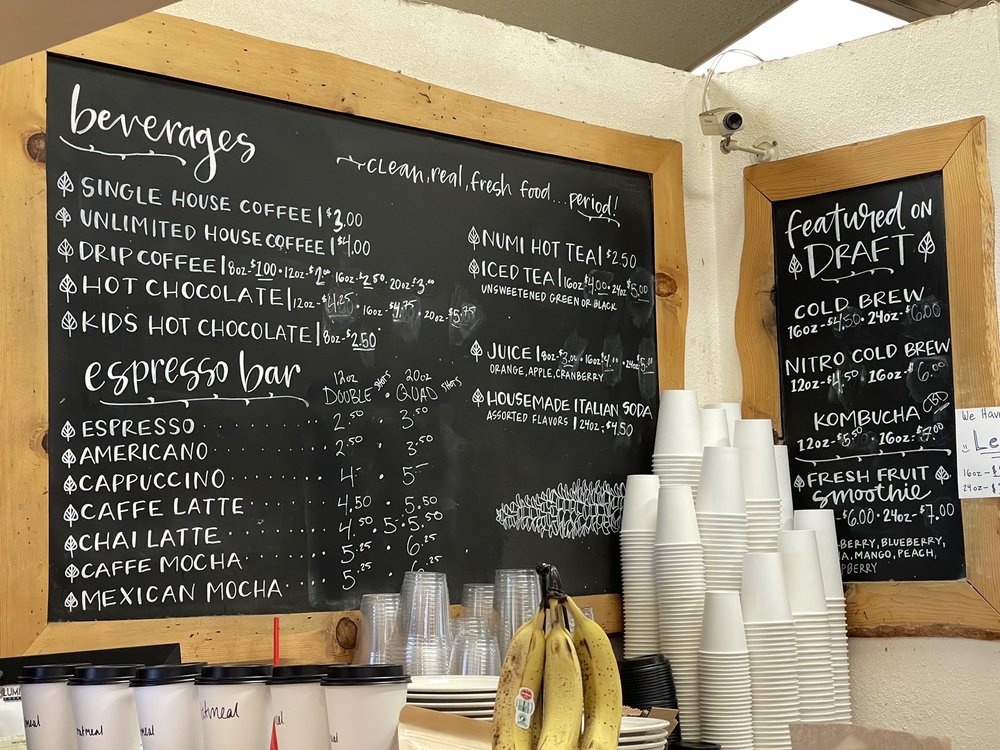 beverages
clean, real, fresh food... period!
SINGLE HOUSE COFFEE | $3.00
UNLIMITED HOUSE COFFEE | $4.00
DRIP COFFEE | 8oz-$1.00 • 12oz-$2.00 • 16oz-$2.50 • 20oz-$3.00
HOT CHOCOLATE | 12oz-$4.25 • 16oz-$4.75 • 20oz-$5.75
KIDS HOT CHOCOLATE | 8oz-$2.50
NUMI HOT TEA | $2.50
ICED TEA | 16oz $4.00 • 24oz $5.00
UNSWEETENED GREEN OR BLACK
JUICE | 8oz-$3.00 • 16oz $4.00 • 24oz $5.00
ORANGE, APPLE, CRANBERRY
HOUSEMADE ITALIAN SODA
ASSORTED FLAVORS | 24oz-$4.50
espresso bar
12oz DOUBLE SHOTS • 20oz QUAD SHOTS
ESPRESSO 2.50 3.50
AMERICANO 2.50 3.50
CAPPUCCINO 4- 5-
CAFFE LATTE 4.50 5.50
CHAI LATTE 4.50 5.50
CAFFE MOCHA 5.25 6.25
MEXICAN MOCHA 5.25
featured ON
DRAFT
COLD BREW
16oz-$4.50 • 24oz-$6.00
NITRO COLD BREW
12oz-$4.50 16oz-$6.00
KOMBUCHA CBD
12oz-$5.50 16oz-$7.00
FRESH FRUIT
smoothie
-$6.00 • 24oz-$7.00
BERRY, BLUEBERRY,
A. MANGO, PEACH,
PBERRY
We Hav
Le
16oz-$
24oz-$
LUMI
meal
atmeal
atmeal
eal
meal